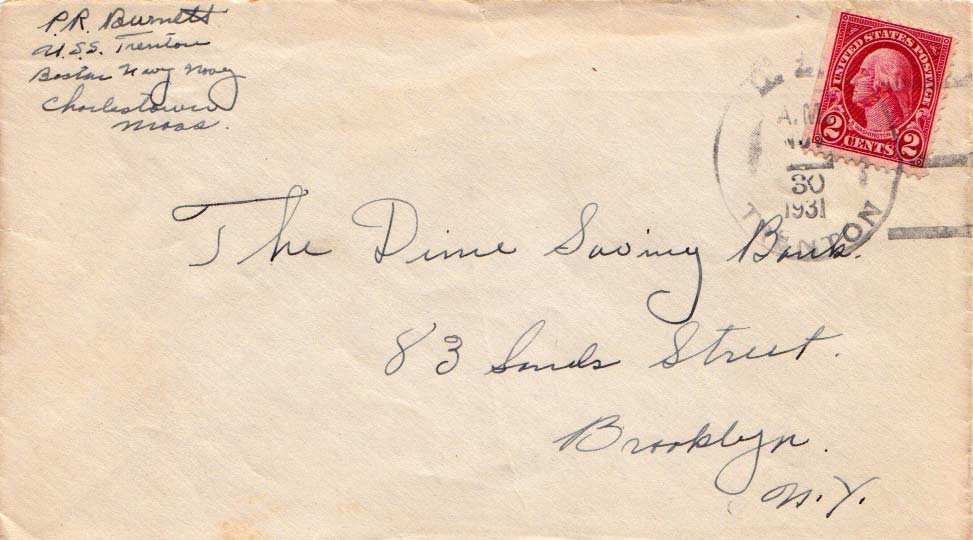 P.R. Burnett
U.S.S. Trenton
Boston Navy
Charlestown
Mass.
UNITED STATES POSTAGE
WASHINGTON
2 CENTS 2
A.M.
NOV
30
1931
TRENTON
The Dime Saving Bank.
83 Sands Street.
Brooklyn.
N.Y.